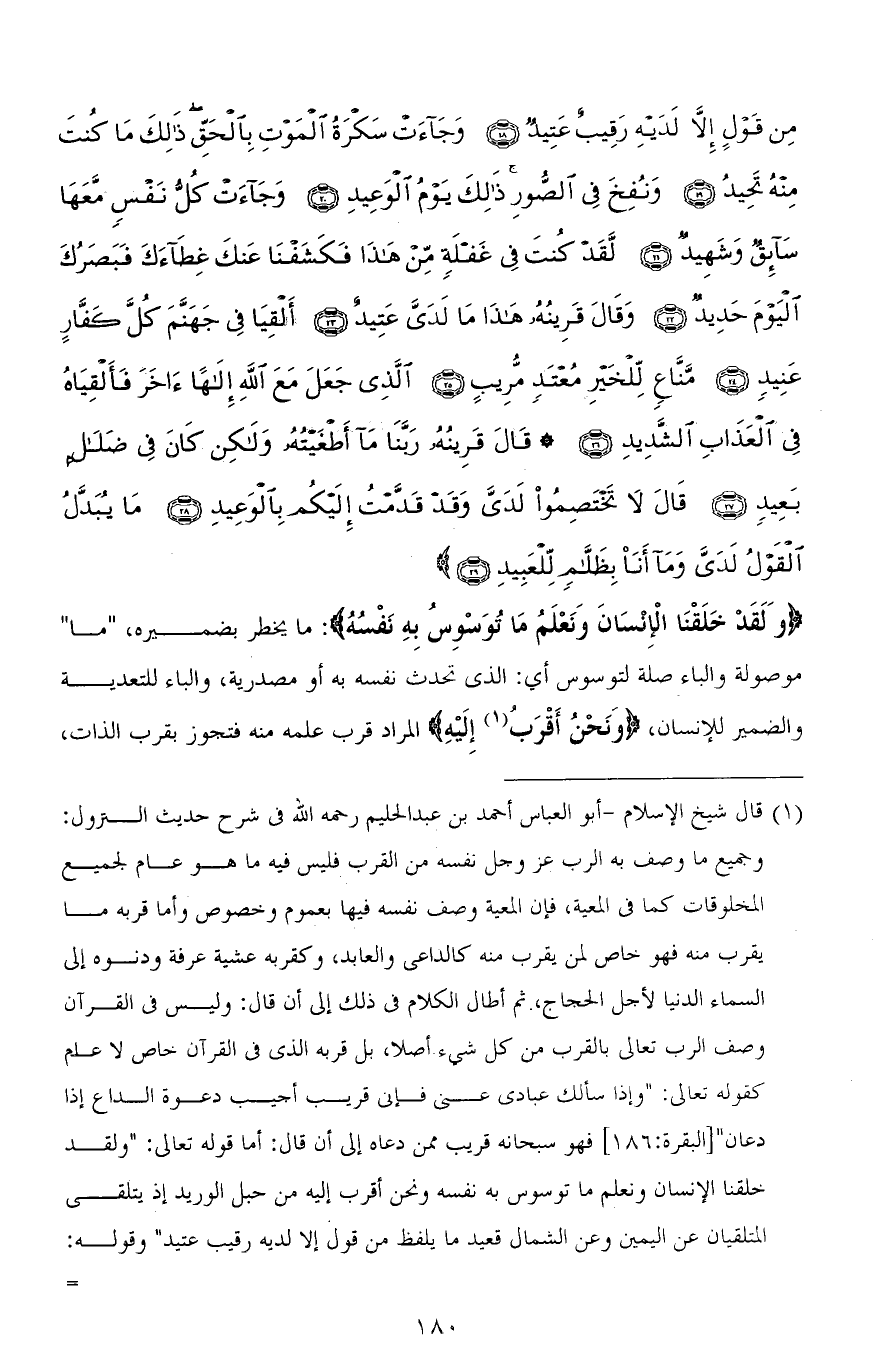 مِن قَوْلٍ إِلَّا لَدَيْهِ رَقِيبٌ عَتِيدٌ ﴿١٨﴾ وَجَآءَتْ سَكْرَةُ ٱلْمَوْتِ بِٱلْحَقِّ ۖ ذَٰلِكَ مَا كُنتَ
مِنْهُ تَحِيدُ ﴿١٩﴾ وَنُفِخَ فِى ٱلصُّورِ ۚ ذَٰلِكَ يَوْمُ ٱلْوَعِيدِ ﴿٢٠﴾ وَجَآءَتْ كُلُّ نَفْسٍ مَّعَهَا
سَآئِقٌ وَشَهِيدٌ ﴿٢١﴾ لَّقَدْ كُنتَ فِى غَفْلَةٍ مِّنْ هَٰذَا فَكَشَفْنَا عَنكَ غِطَآءَكَ فَبَصَرُكَ
ٱلْيَوْمَ حَدِيدٌ ﴿٢٢﴾ وَقَالَ قَرِينُهُۥ هَٰذَا مَا لَدَىَّ عَتِيدٌ ﴿٢٣﴾ أَلْقِيَا فِى جَهَنَّمَ كُلَّ كَفَّارٍ
عَنِيدٍ ﴿٢٤﴾ مَّنَّاعٍ لِّلْخَيْرِ مُعْتَدٍ مُّرِيبٍ ﴿٢٥﴾ ٱلَّذِى جَعَلَ مَعَ ٱللَّهِ إِلَٰهًا ءَاخَرَ فَأَلْقِيَاهُ
فِى ٱلْعَذَابِ ٱلشَّدِيدِ ﴿٢٦﴾ * قَالَ قَرِينُهُۥ رَبَّنَا مَآ أَطْغَيْتُهُۥ وَلَٰكِن كَانَ فِى ضَلَٰلٍۭ
بَعِيدٍ ﴿٢٧﴾ قَالَ لَا تَخْتَصِمُوا۟ لَدَىَّ وَقَدْ قَدَّمْتُ إِلَيْكُم بِٱلْوَعِيدِ ﴿٢٨﴾ مَا يُبَدَّلُ
ٱلْقَوْلُ لَدَىَّ وَمَآ أَنَا۠ بِظَلَّٰمٍ لِّلْعَبِيدِ ﴿٢٩﴾ ﴾
﴿وَلَقَدْ خَلَقْنَا الْإِنْسَانَ وَنَعْلَمُ مَا تُوَسْوِسُ بِهِ نَفْسُهُ﴾: ما يخطر بضميره، "ما"
موصولة والباء صلة لتوسوس أي: الذى تحدث نفسه به أو مصدرية، والباء للتعدية
والضمير للإنسان، ﴿وَنَحْنُ أَقْرَبُ(١) إِلَيْهِ﴾ المراد قرب علمه منه فتجوز بقرب الذات،
(١) قال شيخ الإسلام -أبو العباس أحمد بن عبدالحليم رحمه الله فى شرح حديث النزول:
وجميع ما وصف به الرب عز وجل نفسه من القرب فليس فيه ما هو عام لجميع
المخلوقات كما فى المعية، فإن المعية وصف نفسه فيها بعموم وخصوص وأما قربه ما
يقرب منه فهو خاص لمن يقرب منه كالداعى والعابد، وكقربه عشية عرفة ودنوه إلى
السماء الدنيا لأجل الحجاج، ثم أطال الكلام فى ذلك إلى أن قال: وليس فى القرآن
وصف الرب تعالى بالقرب من كل شيء أصلا، بل قربه الذى فى القرآن خاص لا علم
كقوله تعالى: "وإذا سألك عبادى عنى فإنى قريب أجيب دعوة الداع إذا
دعان"[البقرة:١٨٦] فهو سبحانه قريب ممن دعاه إلى أن قال: أما قوله تعالى: "ولقد
خلقنا الإنسان ونعلم ما توسوس به نفسه ونحن أقرب إليه من حبل الوريد إذ يتلقى
المتلقيان عن اليمين وعن الشمال قعيد ما يلفظ من قول إلا لديه رقيب عتيد" وقوله:
=
١٨٠